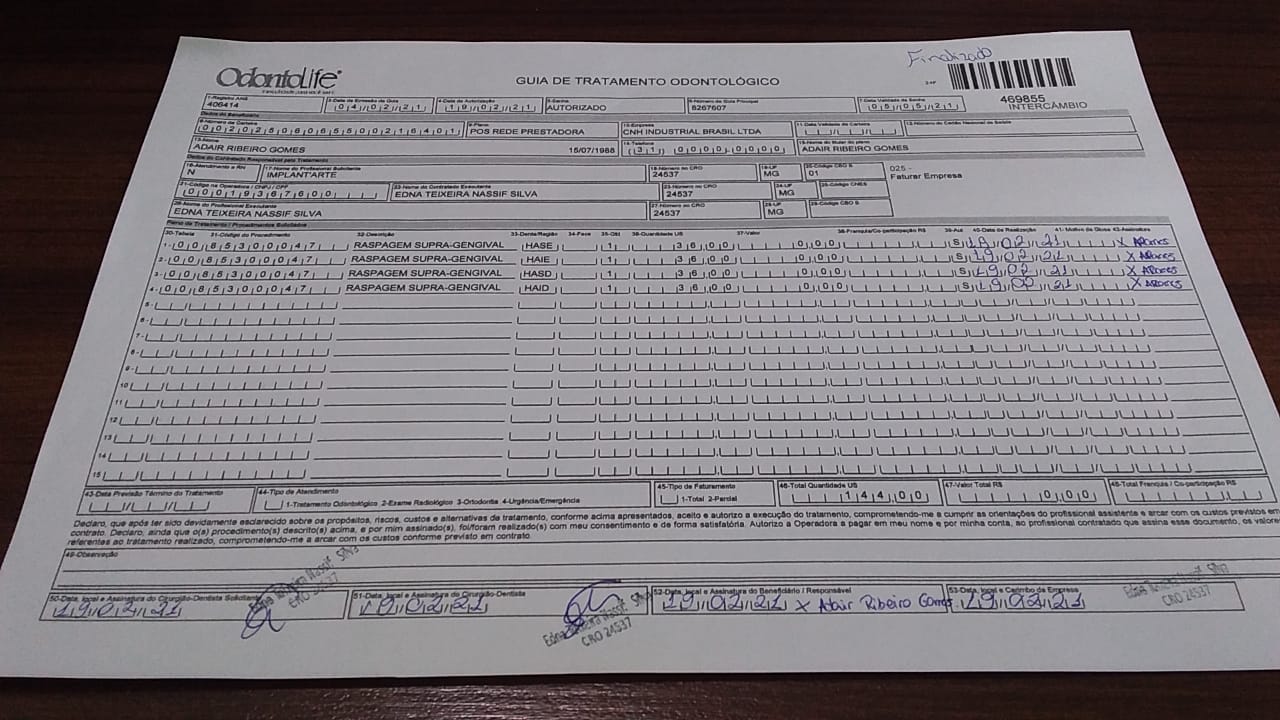 Finalizado
OdontoLife
GUIA DE TRATAMENTO ODONTOLÓGICO
469855
INTERCÂMBIO
1-Registro ANS
406414
3-Data de Emissão da Guia
04/02/21
4-Data de Autorização
19/02/21
5-Senha
AUTORIZADO
6-Número da Guia Principal
8267607
7-Data Validade da Senha
05/05/21
Dados do Beneficiário
8-Número da Carteira
00202506065500216401
9-Plano
POS REDE PRESTADORA
10-Empresa
CNH INDUSTRIAL BRASIL LTDA
11-Data Validade da Carteira
12-Número do Cartão Nacional de Saúde
13-Nome
ADAIR RIBEIRO GOMES 15/07/1988
14-Telefone
(31) 00000000
15-Nome do titular do plano
ADAIR RIBEIRO GOMES
Dados do Contratado Responsável pelo Tratamento
16-Atendimento a RN
N
17-Nome do Profissional Solicitante
IMPLANT'ARTE
18-Número no CRO
24537
19-UF
MG
20-Código CBO S
01
025 -
Faturar Empresa
21-Código na Operadora / CNPJ / CPF
00019367600
22-Nome do Contratado Executante
EDNA TEIXEIRA NASSIF SILVA
23-Número no CRO
24537
24-UF
MG
25-Código CNES
26-Nome do Profissional Executante
EDNA TEIXEIRA NASSIF SILVA
27-Número no CRO
24537
28-UF
MG
29-Código CBO S
Plano de Tratamento / Procedimentos Solicitados
30-Tabela 31-Código do Procedimento 32-Descrição 33-Dente/Região 34-Face 35-Qtd 36-Quantidade US 37-Valor 38-Franquia/Co-participação R$ 39-Aut 40-Data de Realização 41-Motivo da Glosa 42-Assinatura
1- 00 85300047 RASPAGEM SUPRA-GENGIVAL HASE 1 36,00 0,00 S 19/02/21 X
2- 00 85300047 RASPAGEM SUPRA-GENGIVAL HAIE 1 36,00 0,00 S 19/02/21 X
3- 00 85300047 RASPAGEM SUPRA-GENGIVAL HASD 1 36,00 0,00 S 19/02/21 X
4- 00 85300047 RASPAGEM SUPRA-GENGIVAL HAID 1 36,00 0,00 S 19/02/21 X
5-
6-
7-
8-
9-
10
11
12
13
14
15
43-Data Previsão Término do Tratamento
44-Tipo de Atendimento
1-Tratamento Odontológico 2-Exame Radiológico 3-Ortodontia 4-Urgência/Emergência
45-Tipo de Faturamento
1-Total 2-Parcial
46-Total Quantidade US
144,00
47-Valor Total R$
0,00
48-Total Franquia / Co-participação R$
Declaro, que após ter sido devidamente esclarecido sobre os propósitos, riscos, custos e alternativas de tratamento, conforme acima apresentados, aceito e autorizo a execução do tratamento, comprometendo-me a cumprir as orientações do profissional assistente e arcar com os custos previstos em
contrato. Declaro, ainda que o(s) procedimento(s) descrito(s) acima, e por mim assinado(s), foi/foram realizado(s) com meu consentimento e de forma satisfatória. Autorizo a Operadora a pagar em meu nome e por minha conta, ao profissional contratado que assina esse documento, os valores
referentes ao tratamento realizado, comprometendo-me a arcar com os custos conforme previsto em contrato.
49-Observação
50-Data, local e Assinatura do Cirurgião-Dentista Solicitante
19/02/21
Edna Teixeira Nassif Silva
CRO 24537
51-Data, local e Assinatura do Cirurgião-Dentista
19/02/21
Edna Teixeira Nassif Silva
CRO 24537
52-Data, local e Assinatura do Beneficiário / Responsável
19/02/21 X Adair Ribeiro Gomes
53-Data, local e Carimbo da Empresa
19/02/21
Edna Teixeira Nassif Silva
CRO 24537